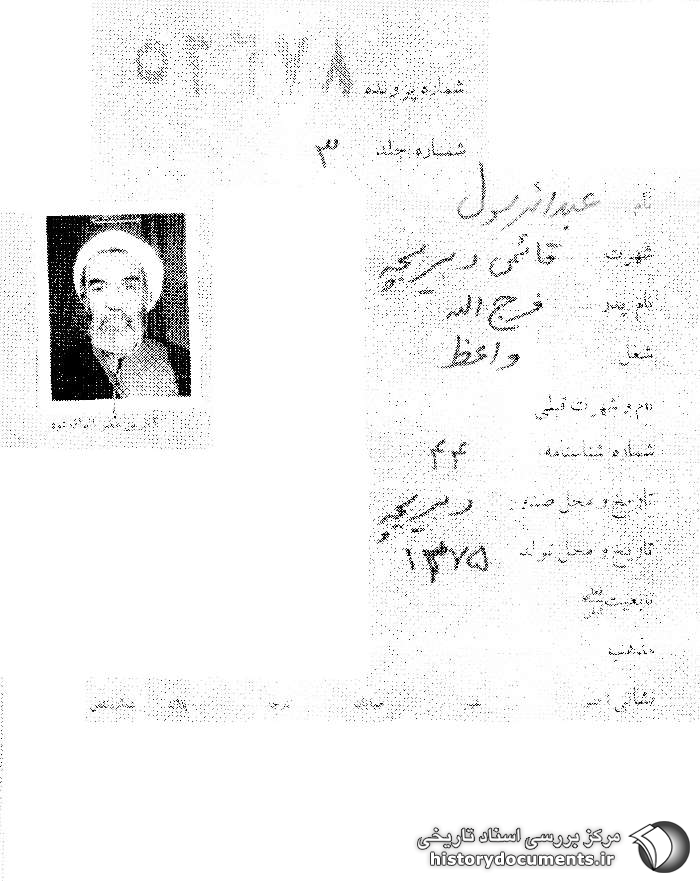 شماره پرونده ۵۳۶۷۸
شماره جلد ۳
نام عبدالرسول
شهرت قائمی دیزیچه
نام پدر فرج اله
شغل واعظ
نام و شهرت قبلی
شماره شناسنامه ۴۴
تاریخ و محل صدور دیزیچه
تاریخ و محل تولد ۱۳۷۵
تابعیت
مذهب
نشانی
مرکز بررسی اسناد تاریخی
historydocuments.ir